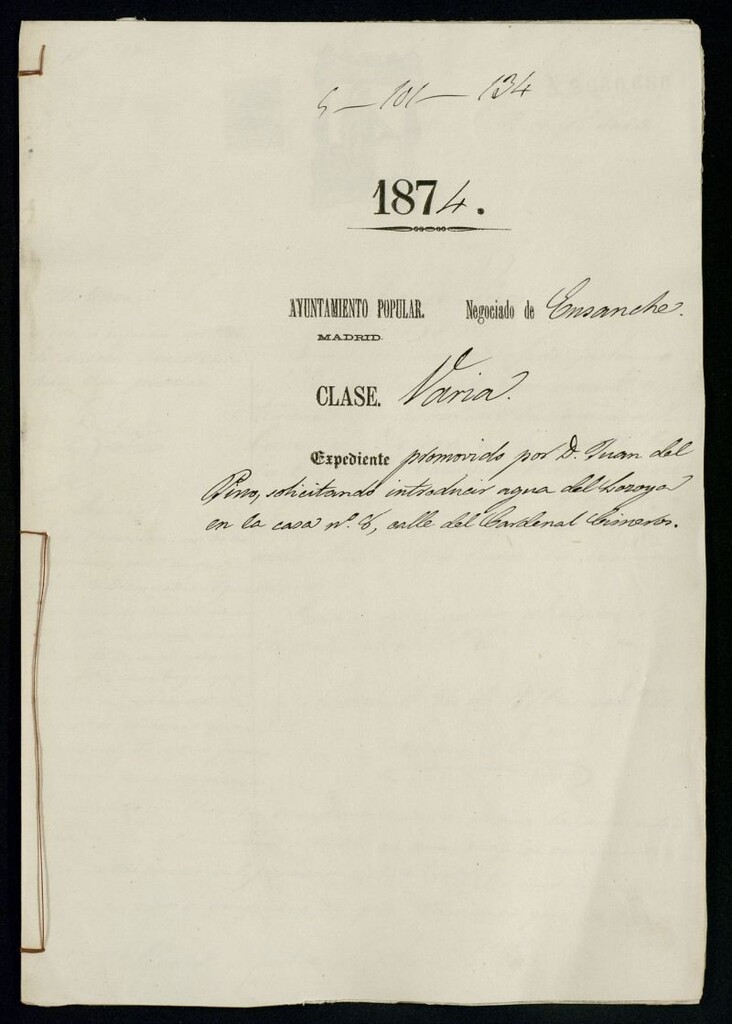 5-101-134
1874.
AYUNTAMIENTO POPULAR. Negociado de Ensanche.
MADRID.
CLASE. Varia.
Expediente promovido por D. Juan del
Pino, solicitando introducir agua del Lozoya
en la casa nº. 8, calle del Cardenal Cisneros.